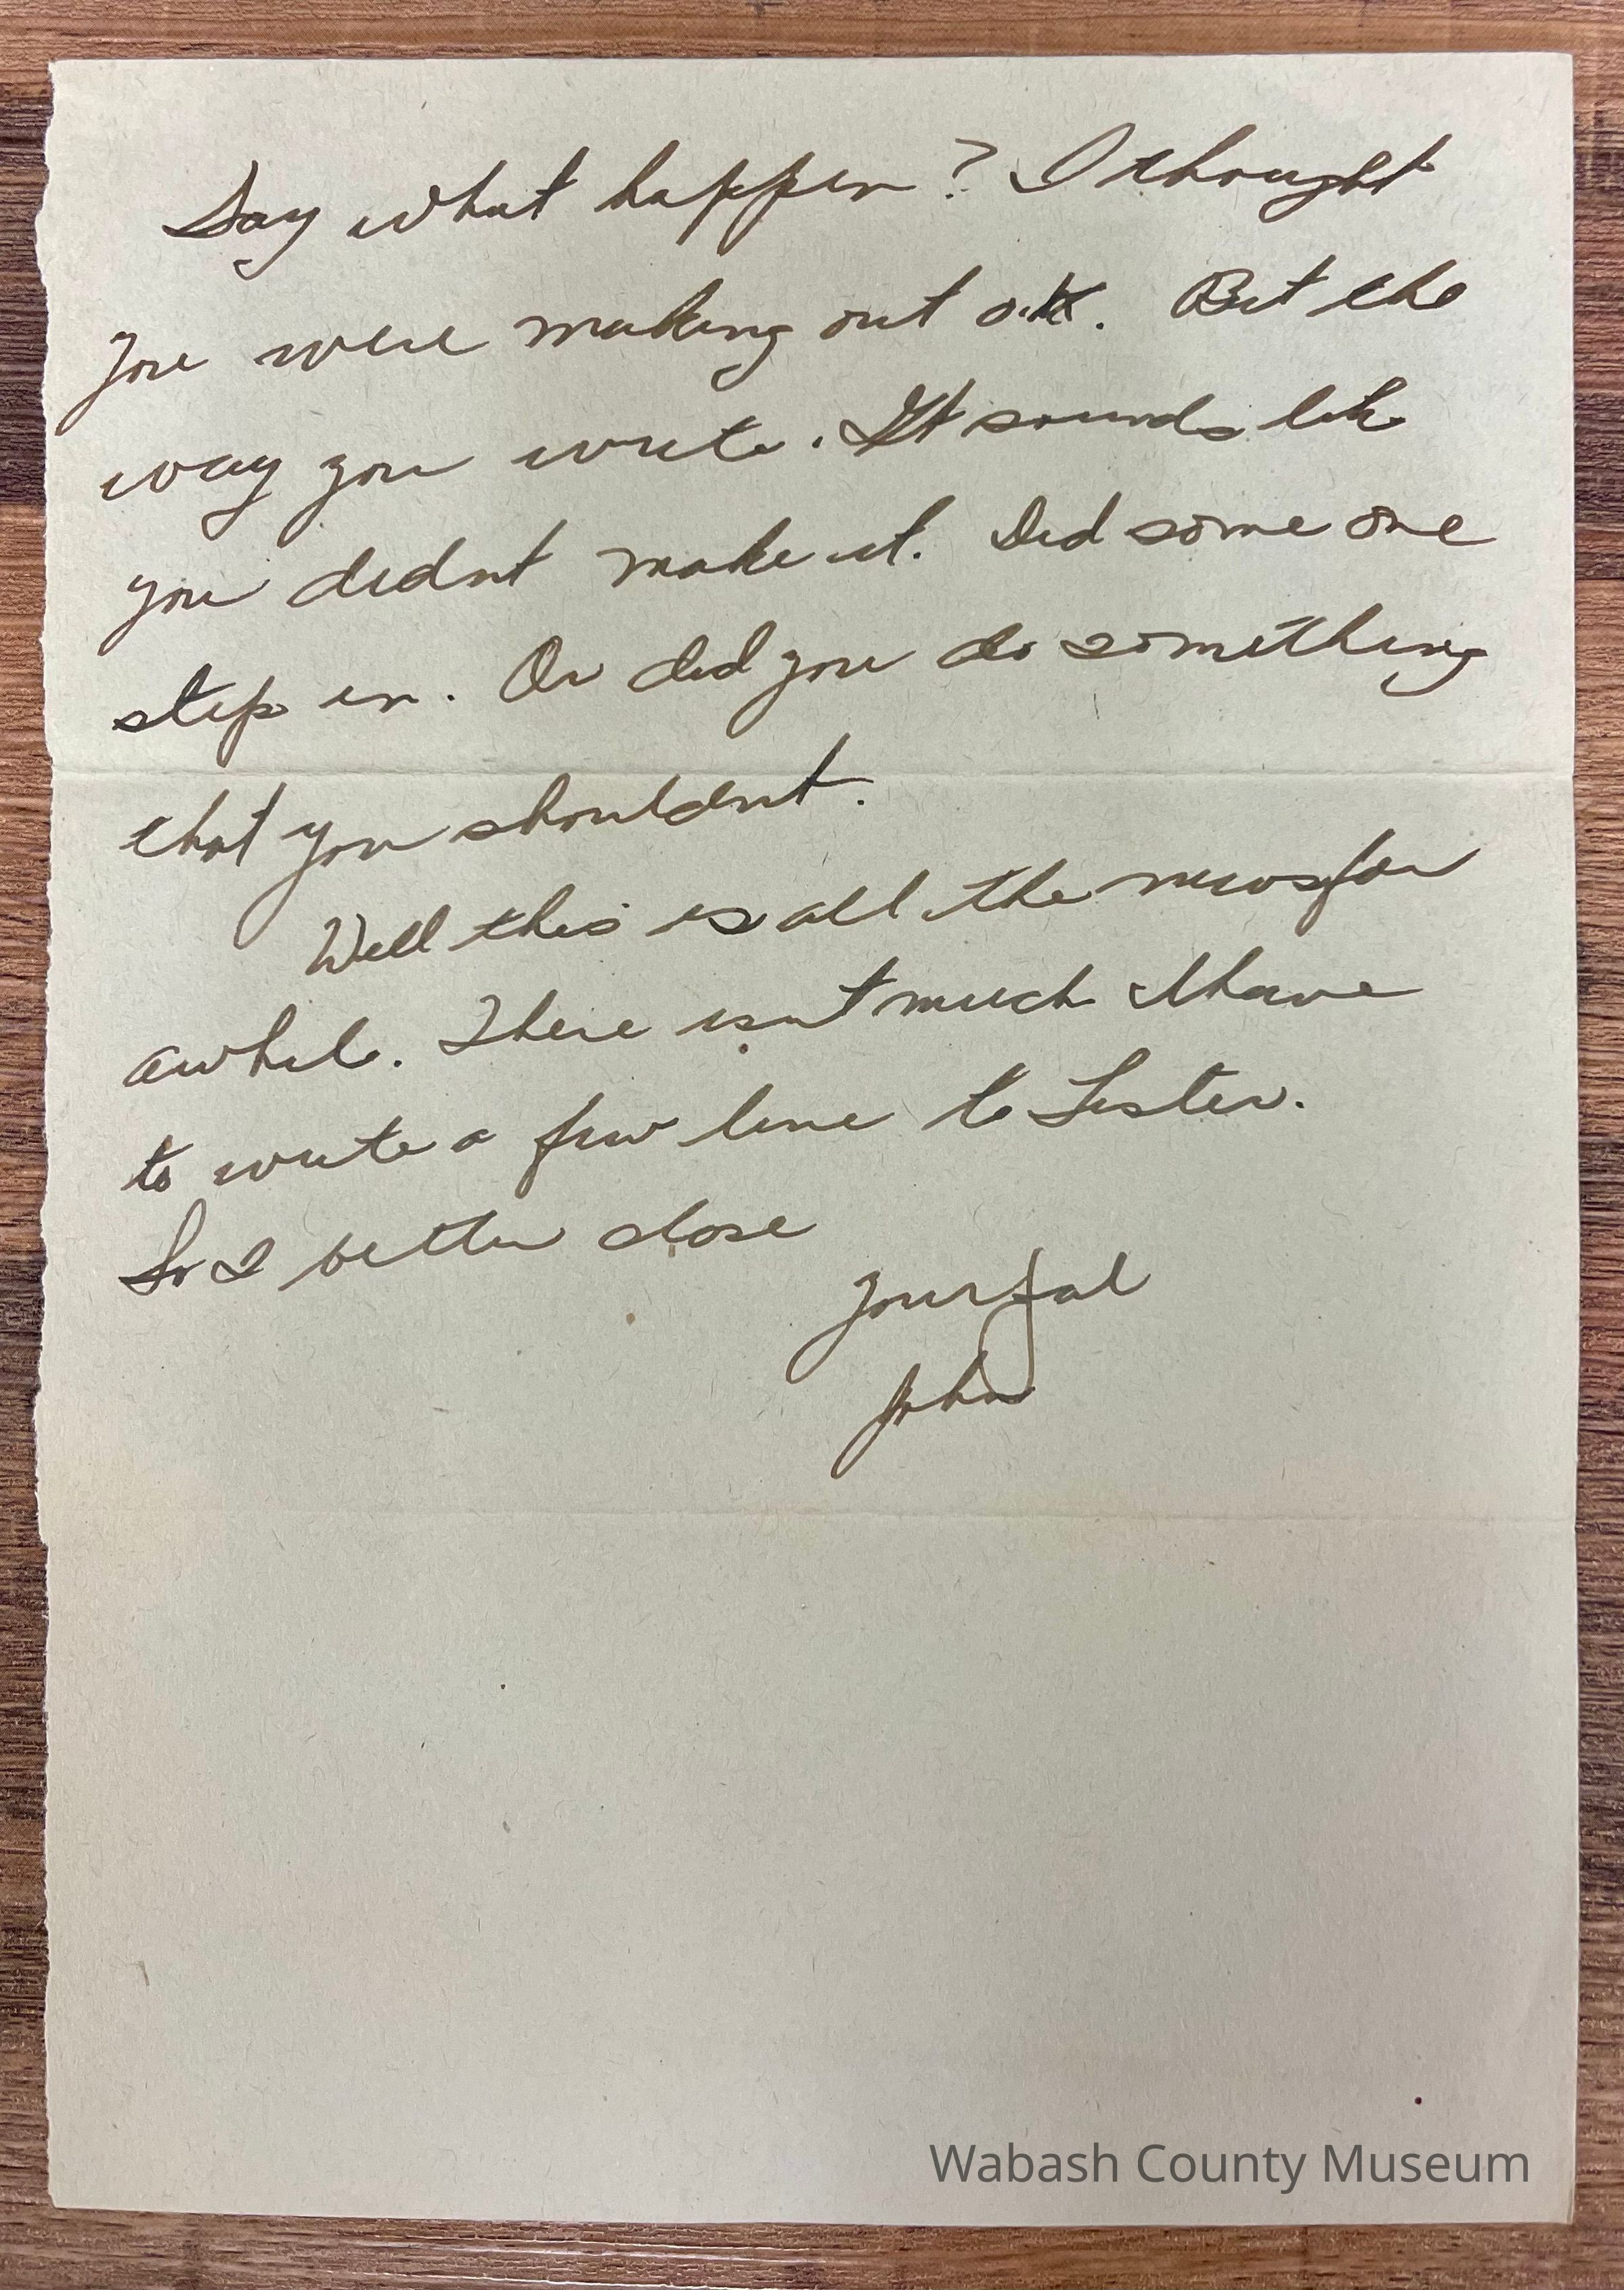 Say what happen? I thought
you were making out o.k. But the
way you write. It sounds like
you didnt make it. Did some one
step in. Or did you do something
that you shouldnt.
Well this is all the news for
awhile. There isnt much I have
to write a few line to Lester.
So I better close
Your Pal
John
Wabash County Museum